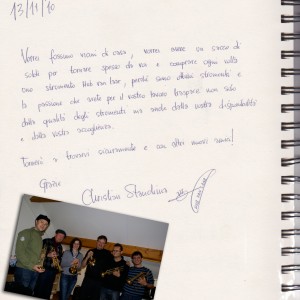 13/11/10
Vorrei fossimo vicini di casa, vorrei avere un sacco di
soldi per tornare spesso da voi e comprare ogni volta
uno strumento
perché sono ottimi strumenti e
la passione che avete per il vostro lavoro traspare non solo
dalla qualità degli strumenti ma anche dalla vostra disponibilità
e dalla vostra accoglienza.
Tornerò a trovarvi sicuramente e con altri nuovi amici!
Grazie
Christian